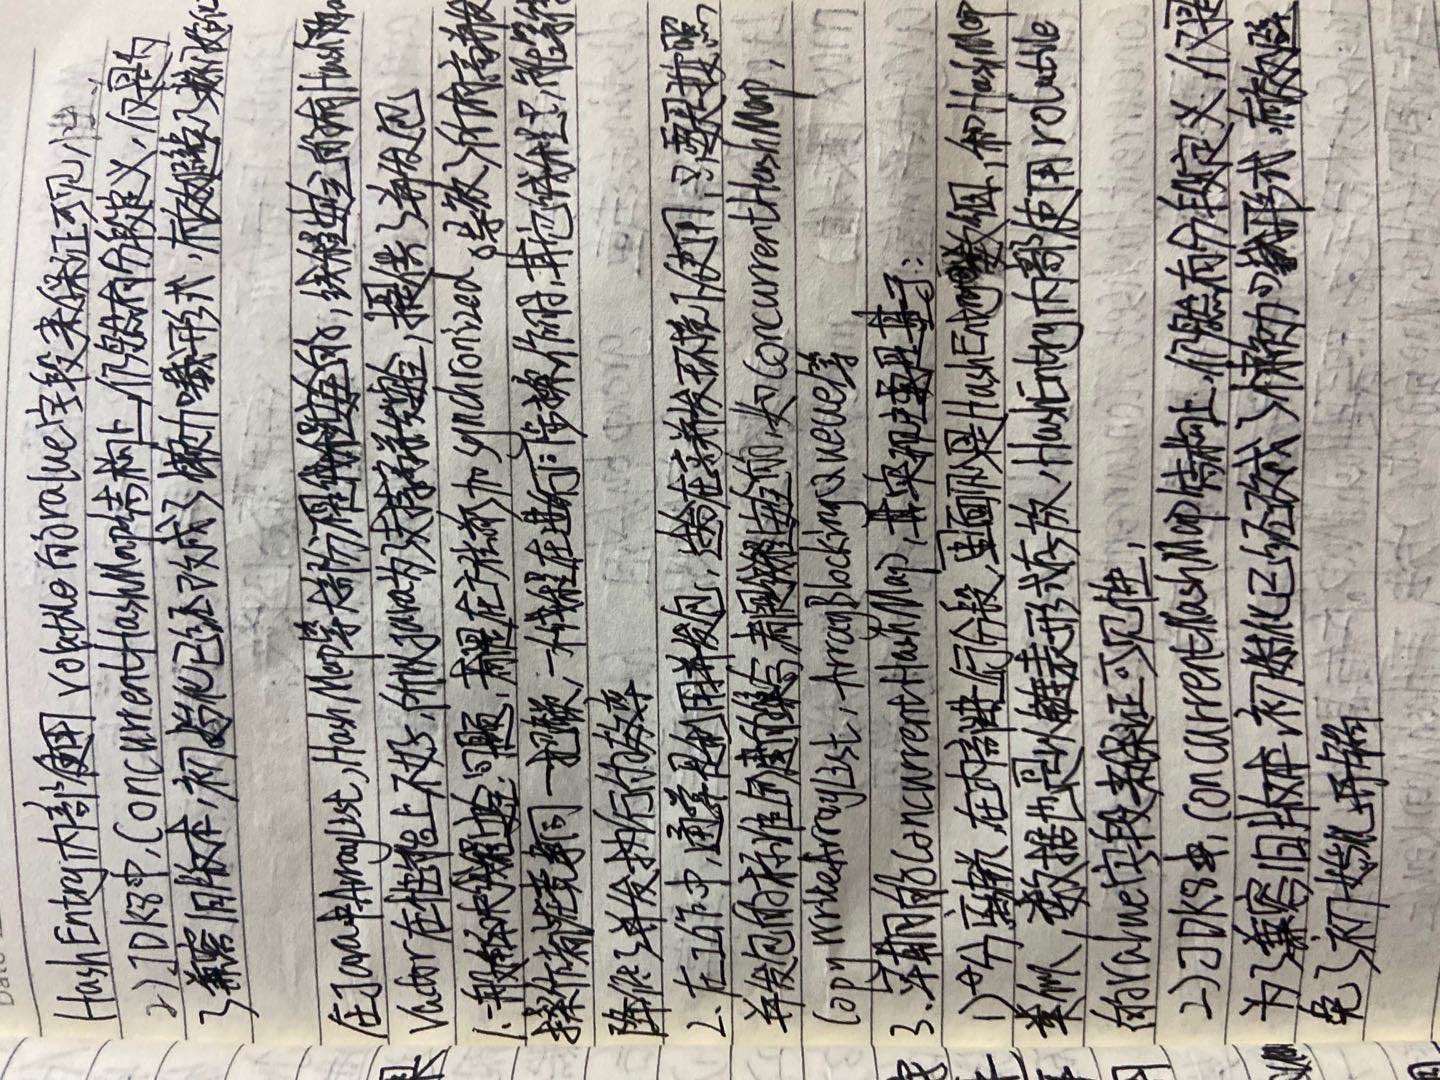 Date
HashEntry内部使用volatile的value字段来保证可见性、
2)JDK8中,ConcurrentHashMap结构上,仍然有分段定义,仅是为
了兼容旧版本,初始化已经改成了懒加载形式,有效避免了初始化
在Java中ArrayList,HashMap等大部分不是线程安全的,线程安全的有Hash
Vactor在性能上不好,所以java为了支持高并发安全,提供了并发包
1.一般解决线程安全问题,都是在方法前加synchronized。导致了所有高并发
操作都在竞争同一把锁,一个线程在进行同步操作时,其它线程只能等待
降低了并发执行的效率
2.在工作中,通常是利用并发包,适合在高并发环境下使用,只要是按照
并发包的标准创建的集合都是线程安全的,如ConcurrentHashMap,
CopyWriteArrayList,ArrayBlockingQueue等
3.早期的ConcurrentHashMap,其实现主要是基于:
1)分离锁,在内部进行分段,里面则是HashEntry数组,和HashMap
类似,数据也是以链表形式存放,HashEntry内部使用volatile
的value字段来保证可见性,
2)JDK8中,ConcurrentHashMap结构上,仍然有分段定义,仅是
为了兼容旧版本,初始化已经改成了懒加载形式,有效避
免了初始化开销